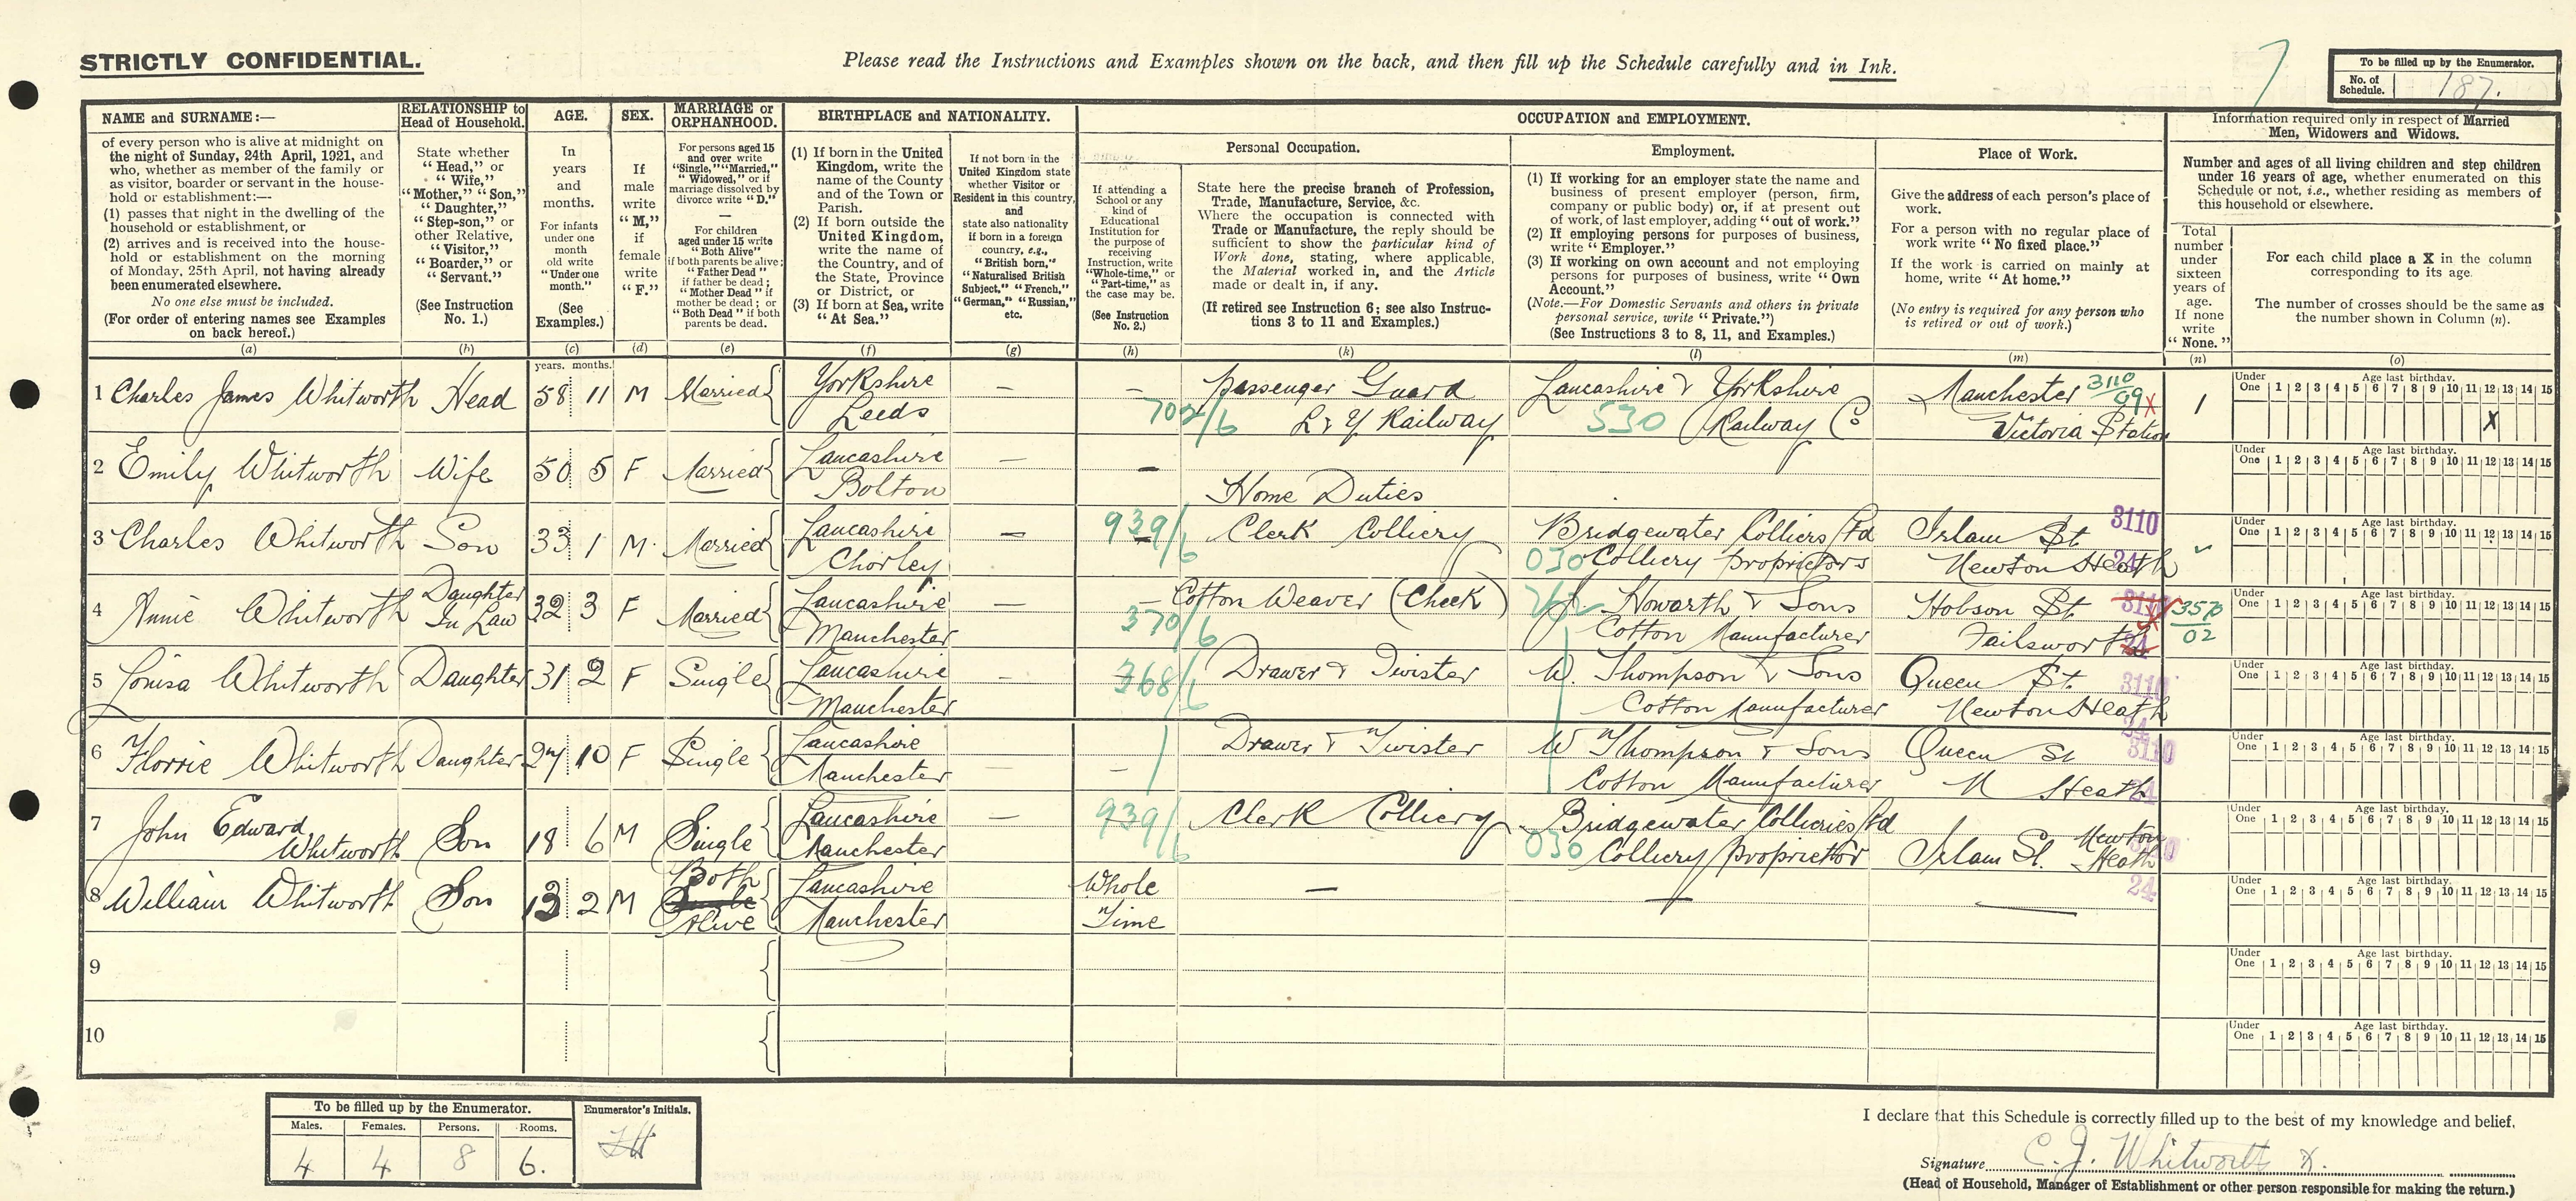 STRICTLY CONFIDENTIAL.
Please read the Instructions and Examples shown on the back, and then fill up the Schedule carefully and in Ink.
7
To be filled up by the Enumerator.
No. of Schedule. 187.
NAME and SURNAME:—
of every person who is alive at midnight on
the night of Sunday, 24th April, 1921, and
who, whether as member of the family or
as visitor, boarder or servant in the house-
hold or establishment:—
(1) passes that night in the dwelling of the
household or establishment, or
(2) arrives and is received into the house-
hold or establishment on the morning
of Monday, 25th April, not having already
been enumerated elsewhere.
No one else must be included.
(For order of entering names see Examples
on back hereof.)
(a)
RELATIONSHIP to
Head of Household.
State whether
"Head," or
"Wife,"
"Mother," "Son,"
"Daughter,"
"Step-son," or
other Relative,
"Visitor,"
"Boarder," or
"Servant."
(See Instruction
No. 1.)
(b)
AGE.
In
years
and
months.
For infants
under one
month
old write
"Under one
month."
(See
Examples.)
(c)
years. months.
SEX.
If
male
write
"M,"
if
female
write
"F."
(d)
MARRIAGE or
ORPHANHOOD.
For persons aged 15
and over write
"Single," "Married,"
"Widowed," or if
marriage dissolved by
divorce write "D."
—
For children
aged under 15 write
"Both Alive"
if both parents be alive;
"Father Dead"
if father be dead;
"Mother Dead" if
mother be dead; or
"Both Dead" if both
parents be dead.
(e)
BIRTHPLACE and NATIONALITY.
(1) If born in the United
Kingdom, write the
name of the County
and of the Town or
Parish.
(2) If born outside the
United Kingdom,
write the name of
the Country, and of
the State, Province
or District, or
(3) If born at Sea, write
"At Sea."
(f)
If not born in the
United Kingdom state
whether Visitor or
Resident in this country,
and
state also nationality
if born in a foreign
country, e.g.,
"British born,"
"Naturalised British
Subject," "French,"
"German," "Russian,"
etc.
(g)
OCCUPATION and EMPLOYMENT.
If attending a
School or any
kind of
Educational
Institution for
the purpose of
receiving
Instruction, write
"Whole-time," or
"Part-time," as
the case may be.
(See Instruction
No. 2.)
(h)
Personal Occupation.
State here the precise branch of Profession,
Trade, Manufacture, Service, &c.
Where the occupation is connected with
Trade or Manufacture, the reply should be
sufficient to show the particular kind of
Work done, stating, where applicable,
the Material worked in, and the Article
made or dealt in, if any.
(If retired see Instruction 6; see also Instruc-
tions 3 to 11 and Examples.)
(k)
Employment.
(1) If working for an employer state the name and
business of present employer (person, firm,
company or public body) or, if at present out
of work, of last employer, adding "out of work."
(2) If employing persons for purposes of business,
write "Employer."
(3) If working on own account and not employing
persons for purposes of business, write "Own
Account."
(Note.—For Domestic Servants and others in private
personal service, write "Private.")
(See Instructions 3 to 8, 11, and Examples.)
(l)
Place of Work.
Give the address of each person's place of
work.
For a person with no regular place of
work write "No fixed place."
If the work is carried on mainly at
home, write "At home."
(No entry is required for any person who
is retired or out of work.)
(m)
Information required only in respect of Married
Men, Widowers and Widows.
Number and ages of all living children and step children
under 16 years of age, whether enumerated on this
Schedule or not, i.e., whether residing as members of
this household or elsewhere.
Total
number
under
sixteen
years of
age.
If none
write
"None."
(n)
For each child place a X in the column
corresponding to its age.
The number of crosses should be the same as
the number shown in Column (n).
(o)
1 Charles James Whitworth Head 58 11 M Married Yorkshire — — Passenger Guard Lancashire & Yorkshire Manchester 3110 1
Leeds 702/6 L & Y Railway 530 Railway Co Victoria Station 09 X
Under One 1 2 3 4 5 6 7 8 9 10 11 12 13 14 15
Age last birthday.
X
2 Emily Whitworth Wife 50 5 F Married Lancashire — —
Bolton Home Duties
Under One 1 2 3 4 5 6 7 8 9 10 11 12 13 14 15
Age last birthday.
3 Charles Whitworth Son 33 1 M. Married Lancashire — 939/6 Clerk Colliery Bridgewater Colliers Ltd Irlam St 3110
Chorley 030 Colliery Proprietors Newton Heath 24
Under One 1 2 3 4 5 6 7 8 9 10 11 12 13 14 15
Age last birthday.
4 Annie Whitworth Daughter In Law 32 3 F Married Lancashire — — Cotton Weaver (Check) J. Howarth & Sons Hobson St. 3110 3570
Manchester 370/6 Cotton Manufacturer Failsworth 24 02
Under One 1 2 3 4 5 6 7 8 9 10 11 12 13 14 15
Age last birthday.
5 Louisa Whitworth Daughter 31 2 F Single Lancashire — 368/6 Drawer & Twister W. Thompson & Sons Queen St. 3110
Manchester Cotton Manufacturer Newton Heath 24
Under One 1 2 3 4 5 6 7 8 9 10 11 12 13 14 15
Age last birthday.
6 Florrie Whitworth Daughter 27 10 F Single Lancashire — — Drawer & Twister W Thompson & Sons Queen St 3110
Manchester Cotton Manufacturer N Heath 24
Under One 1 2 3 4 5 6 7 8 9 10 11 12 13 14 15
Age last birthday.
7 John Edward Whitworth Son 18 6 M Single Lancashire — 939/6 Clerk Colliery Bridgewater Collieries Ltd Newton 3110
Manchester 030 Colliery Proprietor Irlam St. Heath 24
Under One 1 2 3 4 5 6 7 8 9 10 11 12 13 14 15
Age last birthday.
8 William Whitworth Son 13 2 M Both Single Alive Lancashire Whole — — —
Manchester Time
Under One 1 2 3 4 5 6 7 8 9 10 11 12 13 14 15
Age last birthday.
9
Under One 1 2 3 4 5 6 7 8 9 10 11 12 13 14 15
Age last birthday.
10
Under One 1 2 3 4 5 6 7 8 9 10 11 12 13 14 15
Age last birthday.
To be filled up by the Enumerator.
Males. Females. Persons. Rooms.
4 4 8 6.
Enumerator's Initials.
I declare that this Schedule is correctly filled up to the best of my knowledge and belief.
Signature C. J. Whitworth X.
(Head of Household, Manager of Establishment or other person responsible for making the return.)